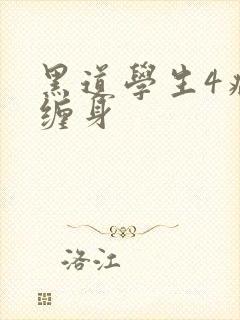 黑道學生4
缠身
洛江